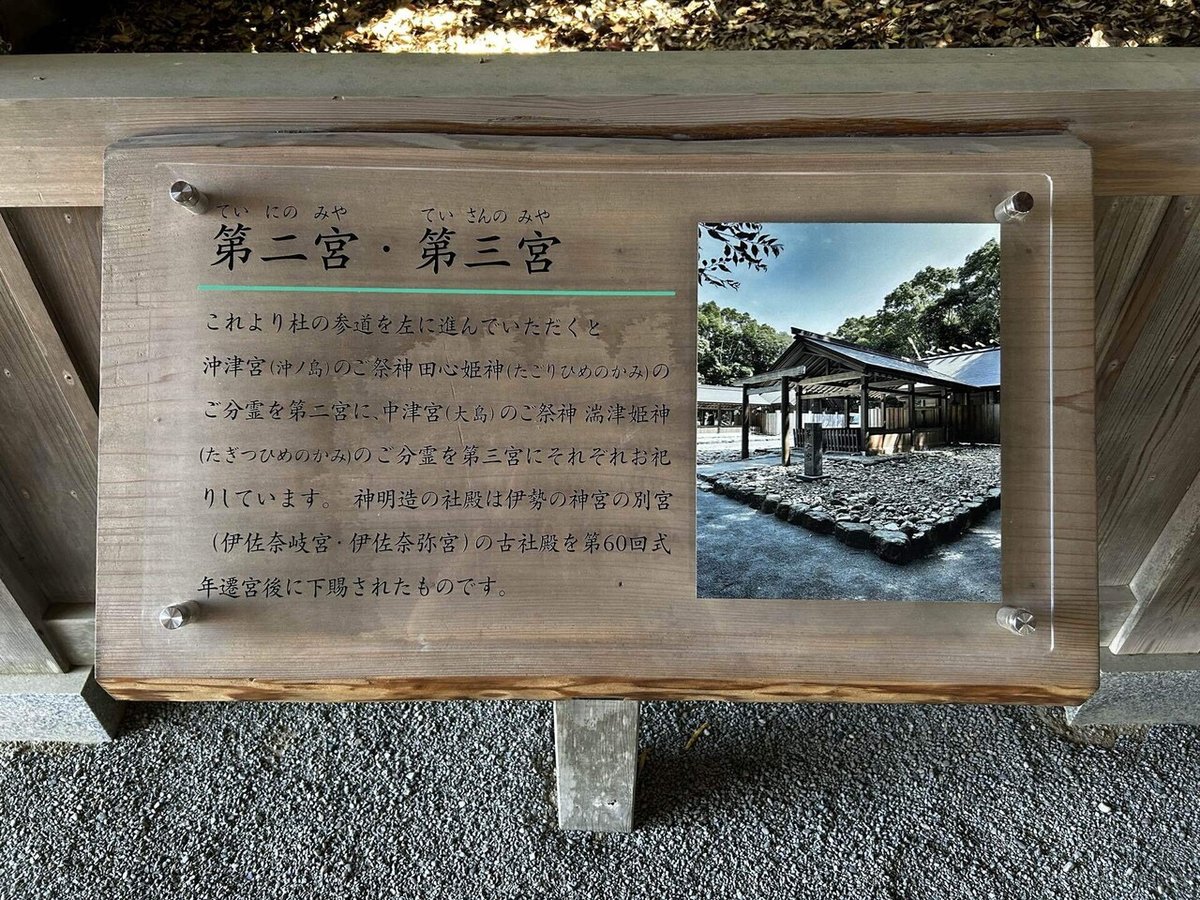 てい にの みや てい さんの みや
第二宮・第三宮
これより杜の参道を左に進んでいただくと
沖津宮(沖ノ島)のご祭神 田心姫神(たごりひめのかみ)の
ご分霊を第二宮に、中津宮(大島)のご祭神 湍津姫神
(たぎつひめのかみ)のご分霊を第三宮にそれぞれお祀
りしています。 神明造の社殿は伊勢の神宮の別宮
(伊佐奈岐宮・伊佐奈弥宮)の古社殿を第60回式
年遷宮後に下賜されたものです。